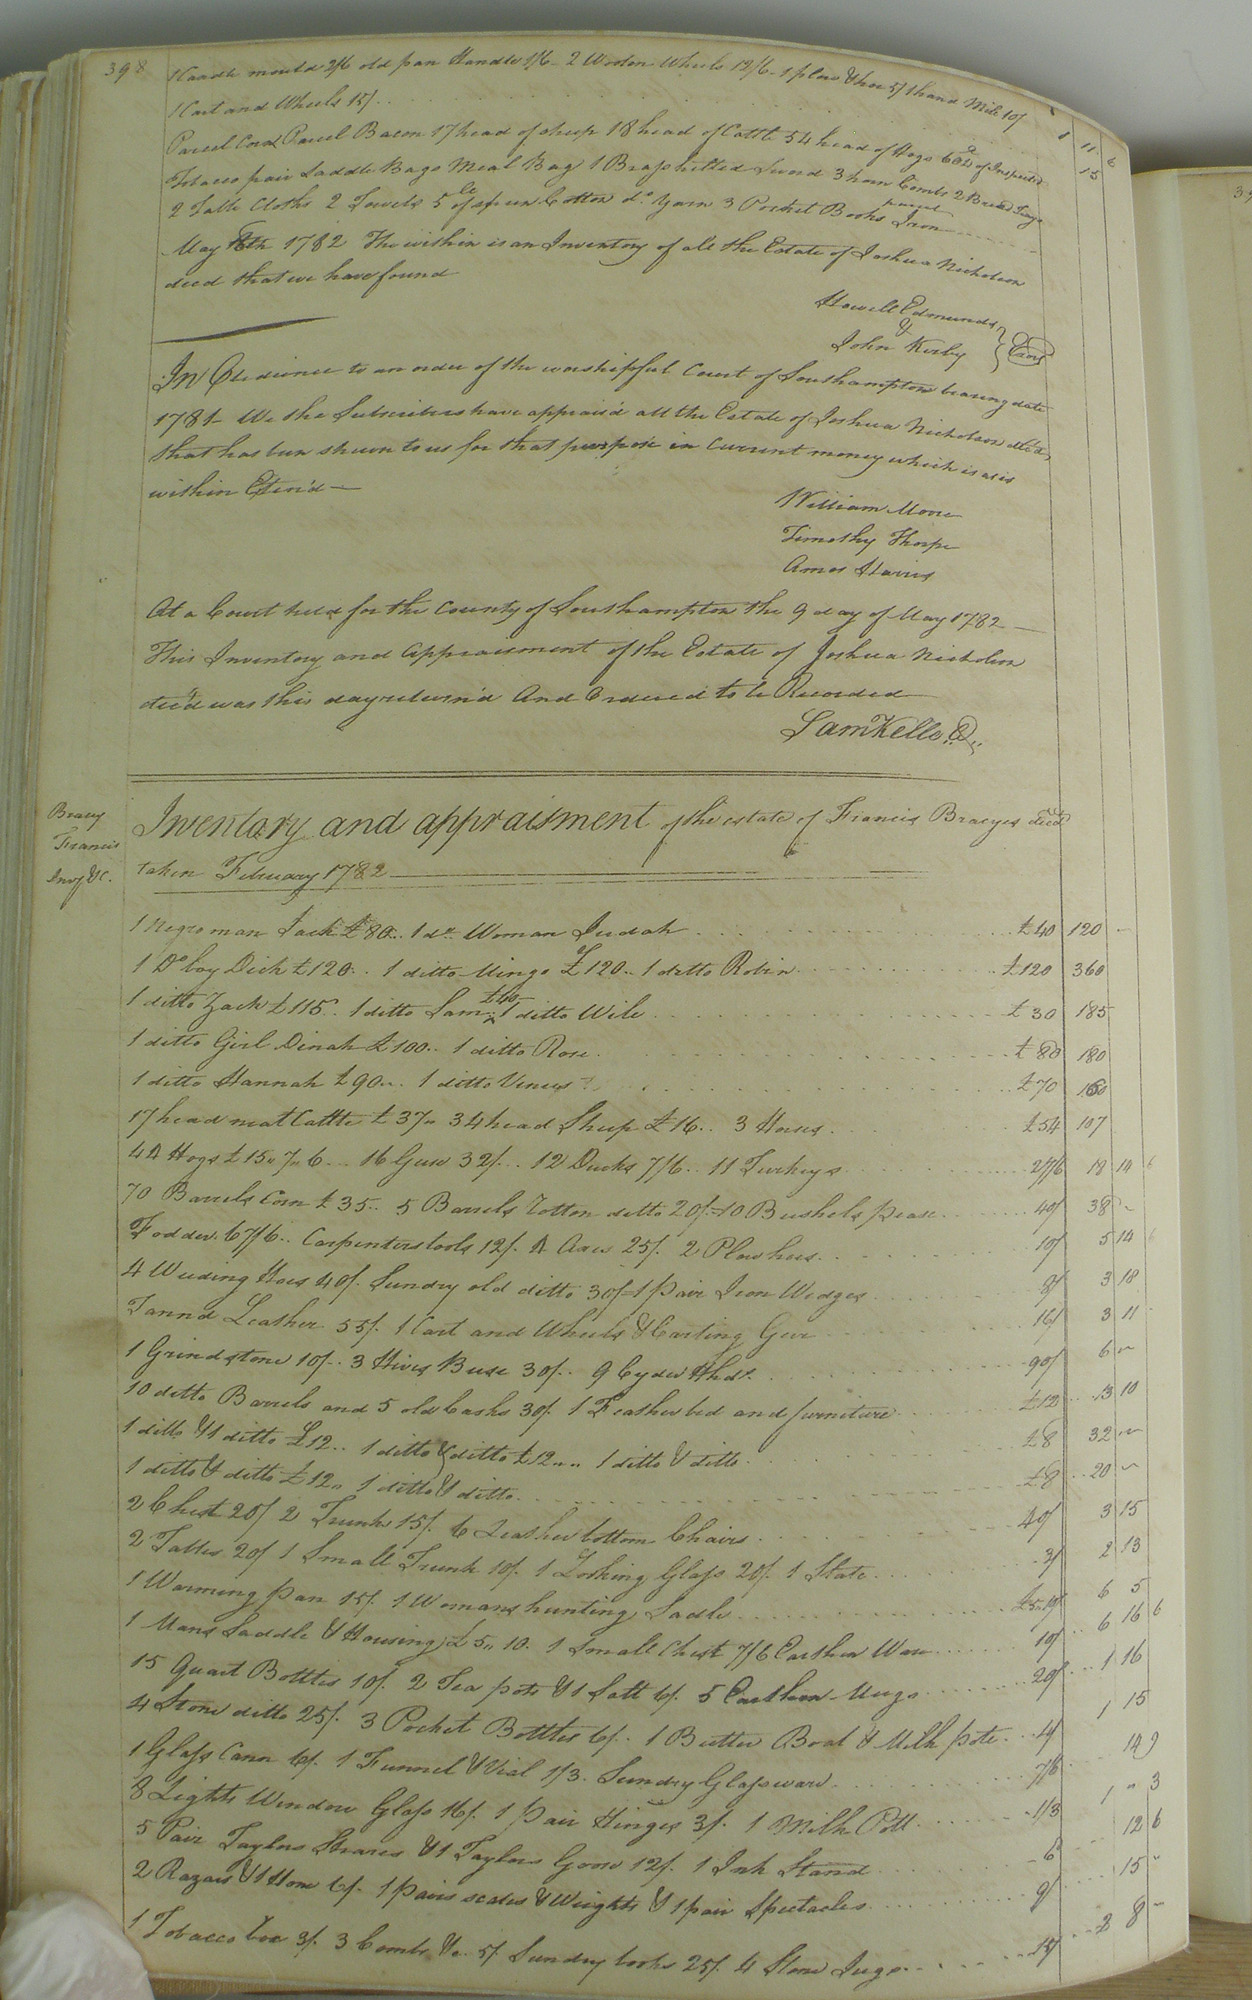 398
1 Candle mould 2/6 old pan Handle 1/6 - 2 Wooden Wheels 12/6 - 1 plow & hoe 5/ 1 hand Mill 10/ 1 11 6
1 Cart and Wheels 15/ 15
Parcel Corn Parcel Bacon 17 head of sheep 18 head of Cattle 54 head of Hogs of Inspected
Tobacco pair Saddle Bags Meal Bag 1 Brass hilted Sword 3 horn Combs 2 Bread Trays
2 Table Cloths 2 Towels 5 lb of spun Cotton do. Yarn 3 Pocket Books parcel Iron
May 8th 1782 The within is an Inventory of all the Estate of Joshua Nicholson
decd that we have found
Howell Edmunds
&
John Kirby } Exors
In Obedience to an order of the worshipful Court of Southampton bearing date
1781 - We the Subscribers have apprais'd all the Estate of Joshua Nicholson dec'd,
that has bun shewn to us for that purpose in Current money which is as is
within Enter'd —
William Moore
Timothy Thorpe
Amos Harris
At a Court held for the County of Southampton the 9 day of May 1782 —
This Inventory and Appraisment of the Estate of Joshua Nicholson
dec'd was this day return'd And Ordered to be Recorded
Sam Kello
Bracy
Francis
Invy &C.
Inventory and appraisment of the estate of Francis Bracys decd
taken February 1782
1 Negro man Jack £80.. 1 do. Woman Judah £40 120 -
1 Do boy Dick £120.. 1 ditto Mingo £120.. 1 ditto Robin £120 360
1 ditto Zack £115.. 1 ditto Sam £40 1 ditto Wile £30 185
1 ditto Girl Dinah £100.. 1 ditto Rose £80 180
1 ditto Hannah £90.. 1 ditto Venus £70 160
17 head neat Cattle £37.. 34 head Sheep £16.. 3 Horses £54 107
44 Hogs £15..7..6 16 Geese 32/.. 12 Ducks 7/6.. 11 Turkeys 27/6 18 14 6
70 Barrels Corn £35.. 5 Barrels Rotton ditto 20/- 10 Bushels pease 40/ 38 -
Fodder 67/6.. Carpenters tools 12/. 4 Axes 25/. 2 Plowhoes 10/ 5 14 6
4 Weeding Hoes 40/. Sundry old ditto 30/- 1 pair Iron Wedges 8/ 3 18
Tannd Leather 55/. 1 Cart and Wheels & Carting Geer 16/ 3 11
1 Grindstone 10/.. 3 Hives Buse 30/.. 9 Cyder Hhds. 90/ 6 -
10 ditto Barrels and 5 old Casks 30/. 1 Feather bed and furniture £12 13 10
1 ditto & 1 ditto £12.. 1 ditto & ditto £12.. 1 ditto & ditto £8 32 -
1 ditto & ditto £12.. 1 ditto & 1 ditto £8 20 -
2 Chest 20/ 2 Trunks 15/. 6 Leather bottom Chairs 40/ 3 15
2 Tables 20/ 1 Small Trunk 10/. 1 Looking Glass 20/. 1 Slate 3/ 2 13
1 Warming pan 15/. 1 Womans hunting Sadle £5..10 6 5
1 Mans Saddle & Housing £5..10. 1 Small Chest 7/6 Earthen Ware 10/ 6 16 6
15 Quart Bottles 10/. 2 Tea pots & 1 Salt 6/. 5 Earthen Mugs 20/ 1 16
4 Stone ditto 25/. 3 Pocket Bottles 6/. 1 Butter Boat & Milk pots 4/ 1 15
1 Glass Canor 6/. 1 Funnel & Vial 1/3. Sundry Glassware 7/6 14 9
8 Lights Window Glass 16/. 1 pair Hinges 3/. 1 Milk Pott 1/3 1 " 3
5 Pair Taylors Shears & 1 Taylors Goose 12/. 1 Ink Stand 6 12 6
2 Razars & 1 Hone 6/. 1 pair scales & Weights & 1 pair Spectacles 9/ 15 "
1 Tobacco box 3/. 3 Combs &c. 5/. Sundry books 25/. 4 Stone Jugs 15/ 2 8 -